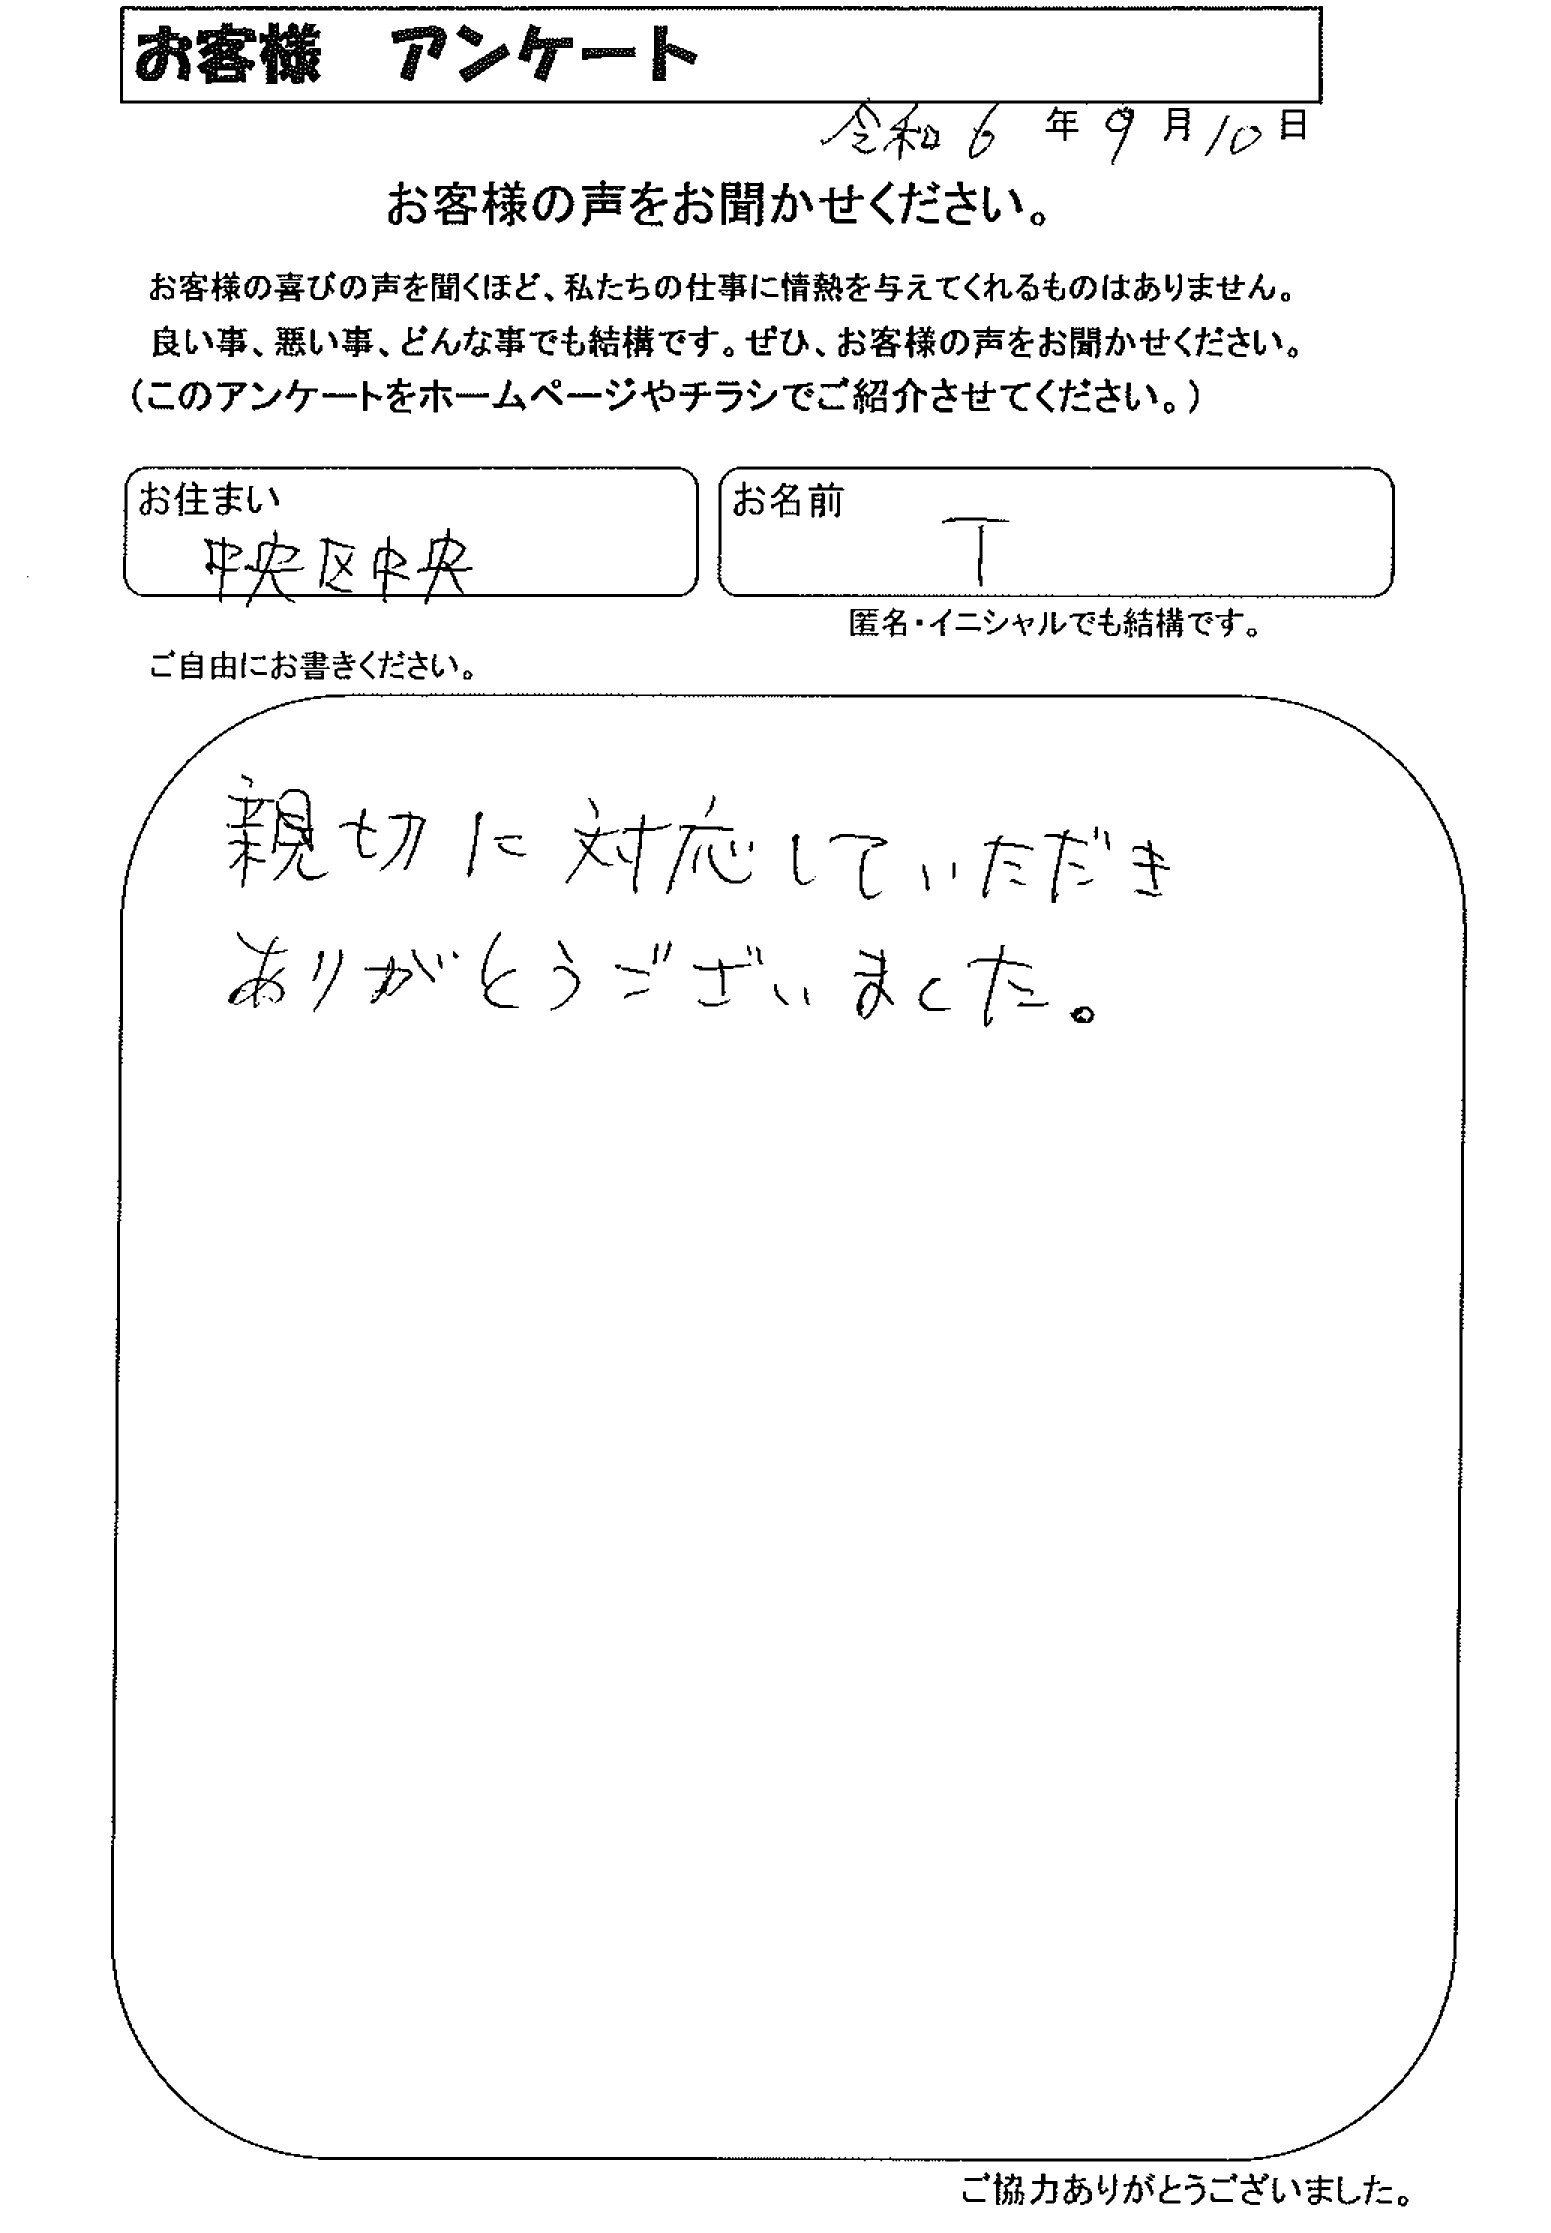 お客様　アンケート
令和6年9月10日
お客様の声をお聞かせください。
お客様の喜びの声を聞くほど、私たちの仕事に情熱を与えてくれるものはありません。
良い事、悪い事、どんな事でも結構です。ぜひ、お客様の声をお聞かせください。
(このアンケートをホームページやチラシでご紹介させてください。)
お住まい
中央区中央
お名前
T
匿名・イニシャルでも結構です。
ご自由にお書きください。
親切に対応していただき
ありがとうございました。
ご協力ありがとうございました。